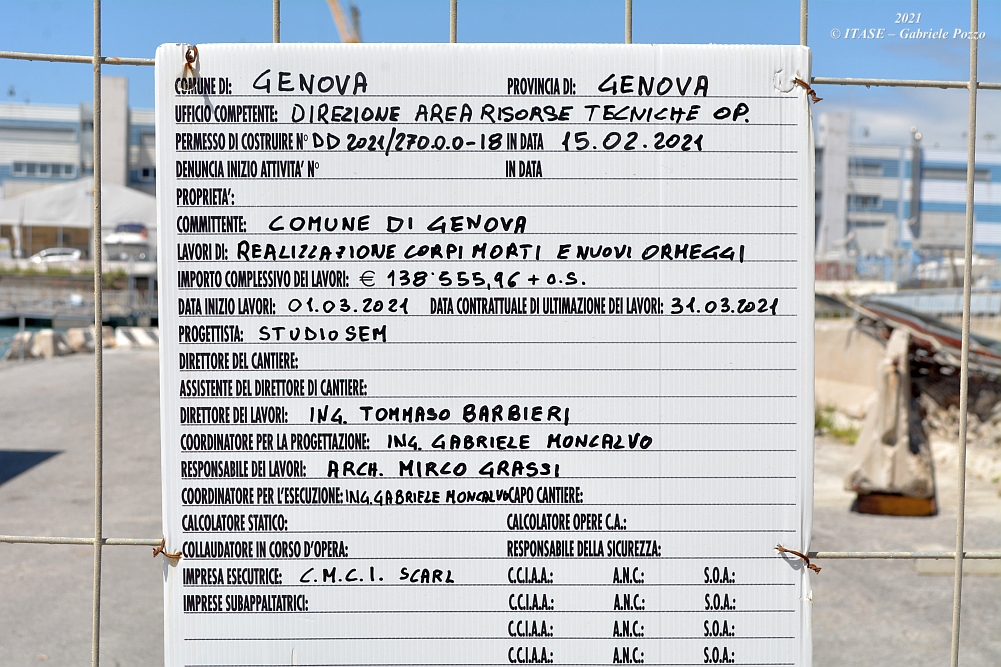 2021
© ITASE – Gabriele Pozzo
COMUNE DI: GENOVA PROVINCIA DI: GENOVA
UFFICIO COMPETENTE: DIREZIONE AREA RISORSE TECNICHE OP.
PERMESSO DI COSTRUIRE N° DD 2021/270.0.0-18 IN DATA 15.02.2021
DENUNCIA INIZIO ATTIVITA' N° IN DATA
PROPRIETA':
COMMITTENTE: COMUNE DI GENOVA
LAVORI DI: REALIZZAZIONE CORPI MORTI E NUOVI ORMEGGI
IMPORTO COMPLESSIVO DEI LAVORI: € 138'555,96 + O.S.
DATA INIZIO LAVORI: 01.03.2021 DATA CONTRATTUALE DI ULTIMAZIONE DEI LAVORI: 31.03.2021
PROGETTISTA: STUDIO SEM
DIRETTORE DEL CANTIERE:
ASSISTENTE DEL DIRETTORE DI CANTIERE:
DIRETTORE DEI LAVORI: ING. TOMMASO BARBIERI
COORDINATORE PER LA PROGETTAZIONE: ING. GABRIELE MONCALVO
RESPONSABILE DEI LAVORI: ARCH. MIRCO GRASSI
COORDINATORE PER L'ESECUZIONE: ING. GABRIELE MONCALVO CAPO CANTIERE:
CALCOLATORE STATICO: CALCOLATORE OPERE C.A.:
COLLAUDATORE IN CORSO D'OPERA: RESPONSABILE DELLA SICUREZZA:
IMPRESA ESECUTRICE: C.M.C.I. SCARL C.C.I.A.A.: A.N.C.: S.O.A.:
IMPRESE SUBAPPALTATRICI: C.C.I.A.A.: A.N.C.: S.O.A.:
C.C.I.A.A.: A.N.C.: S.O.A.:
C.C.I.A.A.: A.N.C.: S.O.A.: